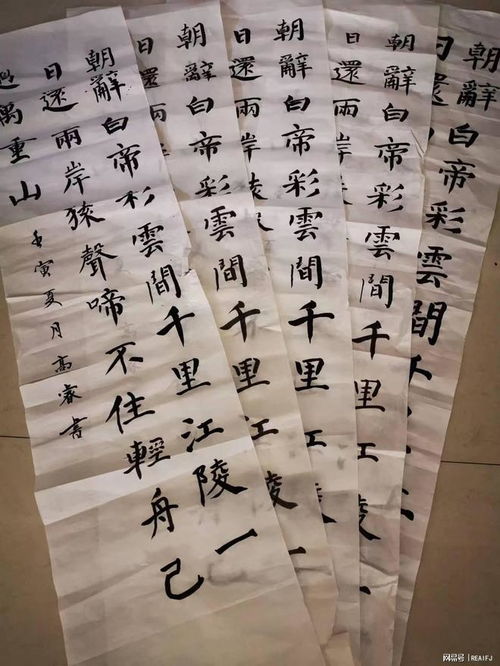 朝辭白帝彩雲間千
日
朝辭白帝彩雲間千里江陵一
日還兩岸
朝辭白帝彩雲間千里江陵
日還兩岸
朝辭白帝彩雲間千里江陵一
日還兩岸
朝辭白帝彩雲間千里江陵一
日還兩岸猿聲啼不住輕舟已
過萬重山
壬寅夏月高書
网易号 | REAIFJ